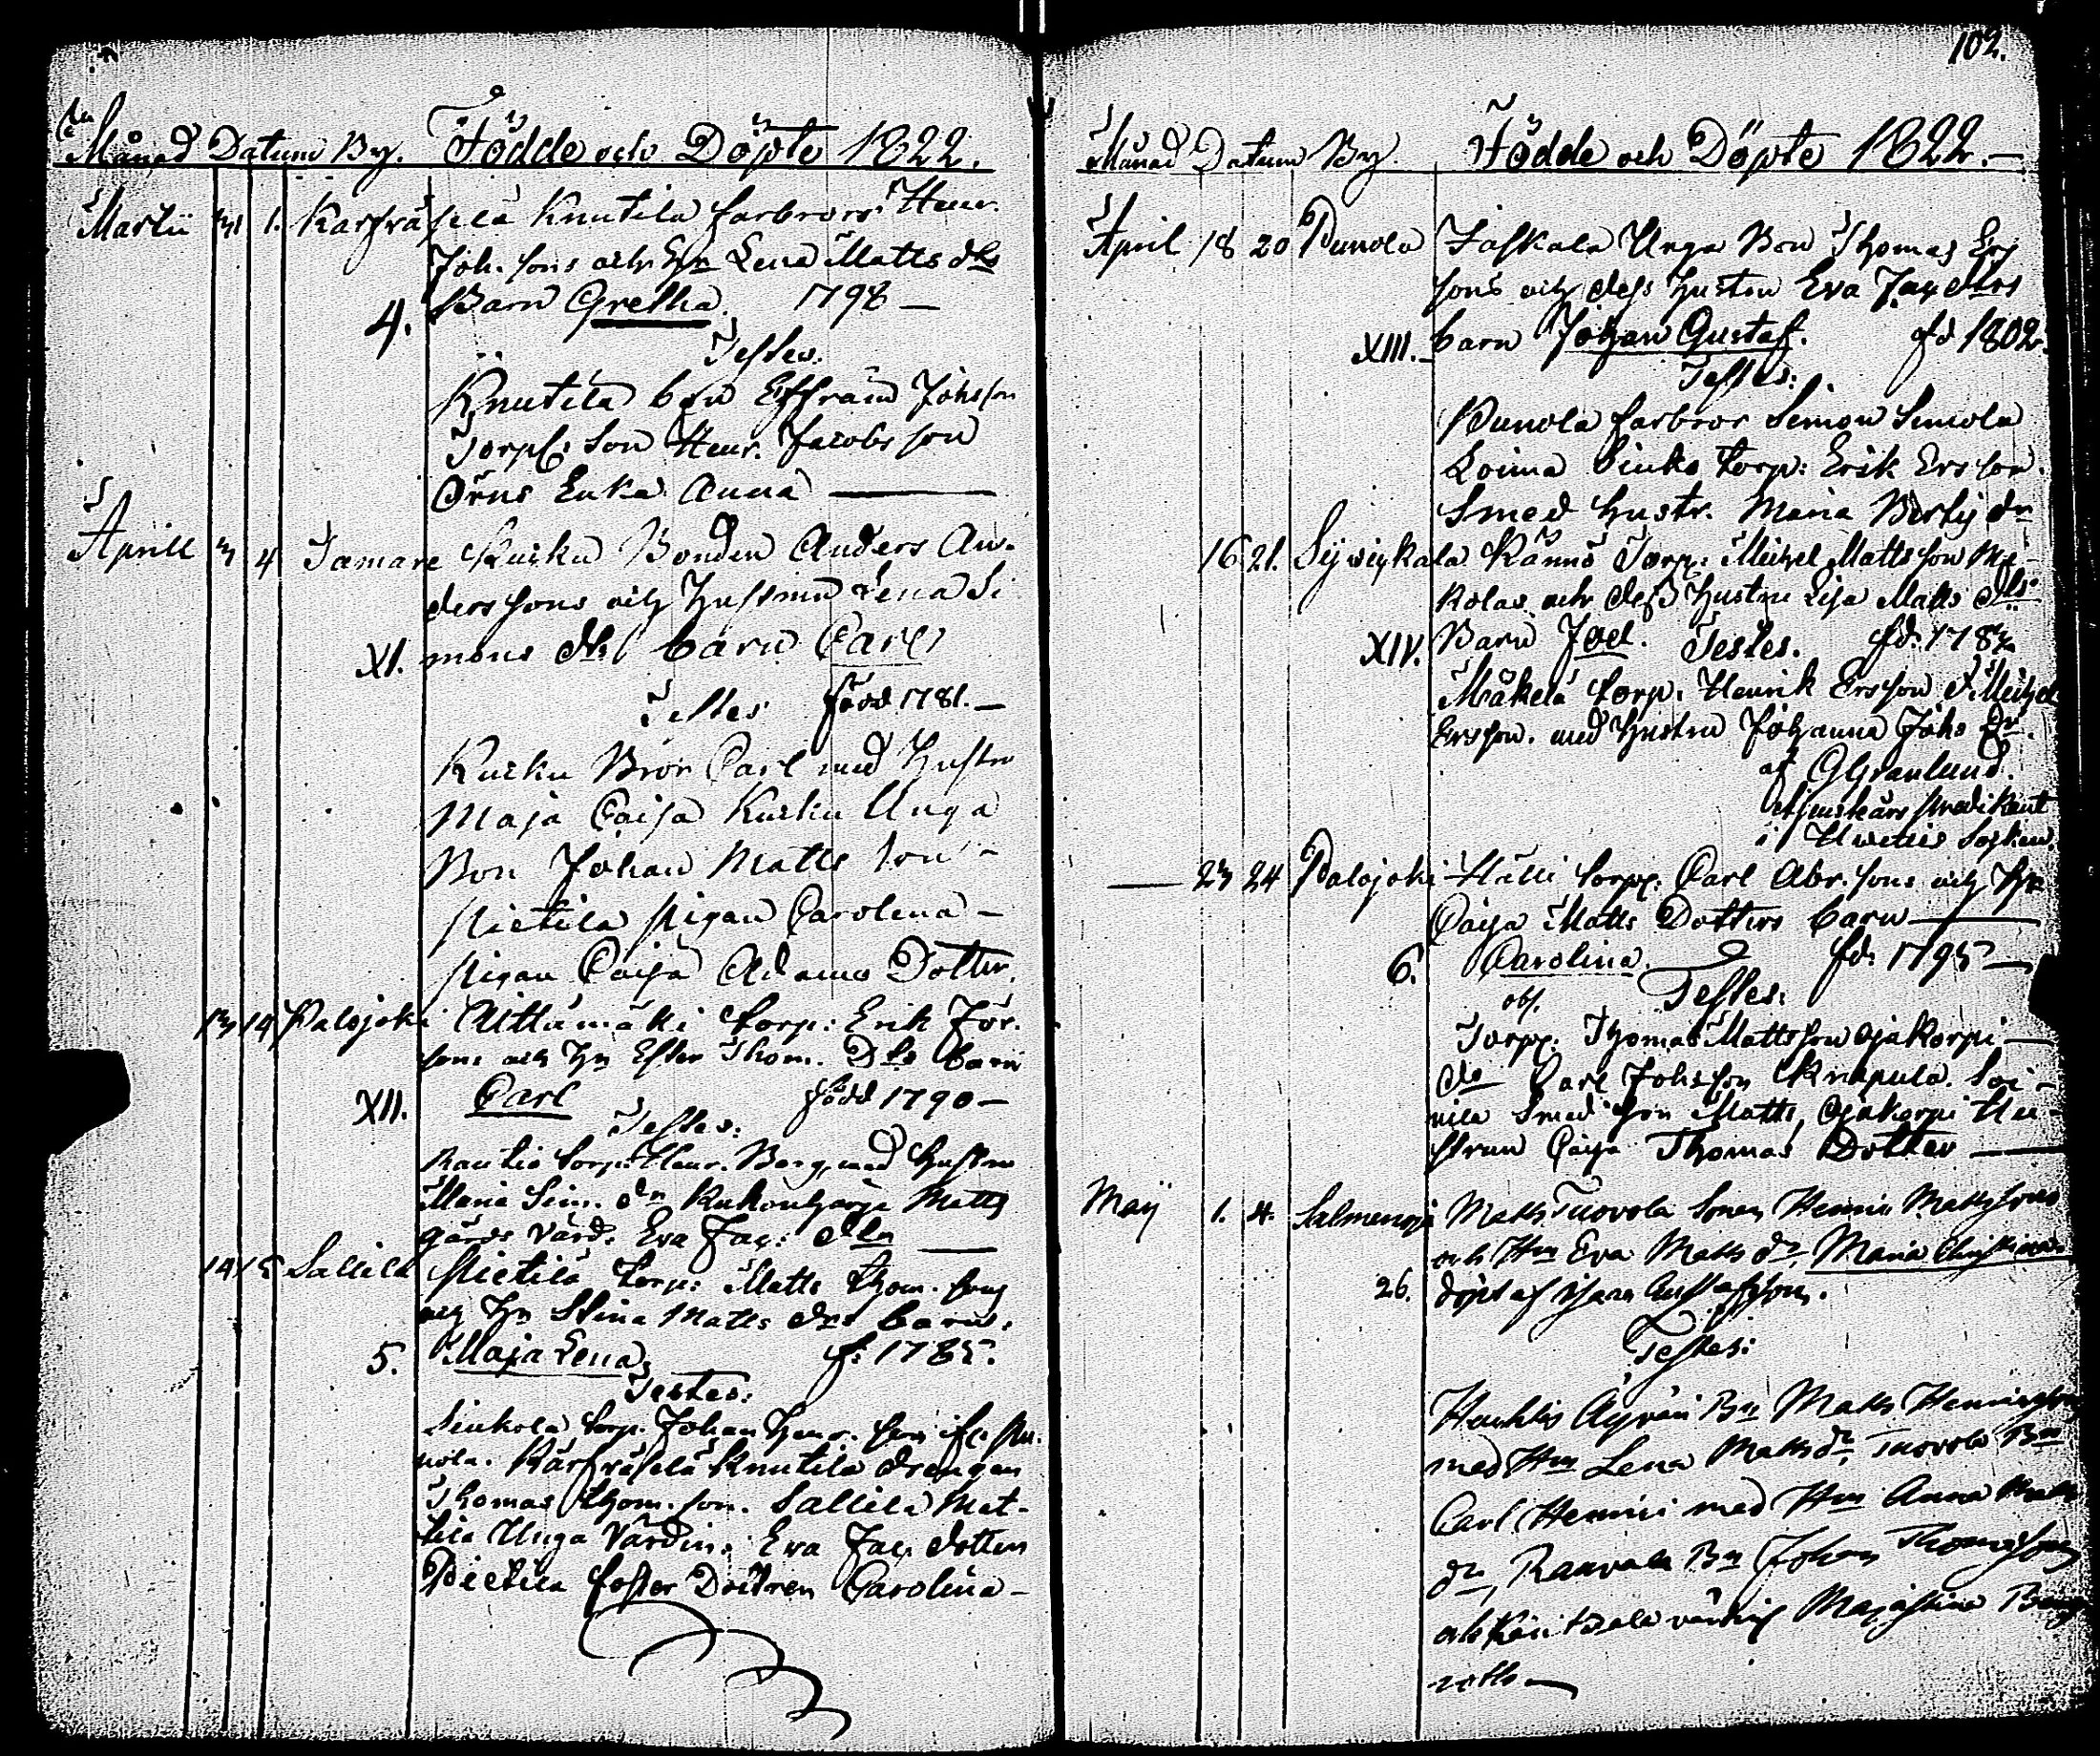 Månad Datum By. Födde och Döpte 1822.
Martii 31 1. Karfräselä Knutila farbrors Henr.
Joh. sons och Hn Lena Matts drs
4. Barn Gretha. 1798 —
Testes.
Knutila bon Effraim Johsson
Torp. Son Henr. Jacobs son
Örns Enka Anna —
Aprill 3 4 Tamare Kurku Bonden Anders An-
derssons och Hustruns Lena Si
XI. mons dr. barn Carl
Testes född 1781. —
Kurku Bror Carl med Hustru
Maja Caisa Kurku Unga
Bon Johan Matts son -
Pietila Pigan Carolina —
Pigan Caisa Adams Dotter.
13 14 Palojoki Uittamäki torp: Erik Joh.
sons och Hn Ester Thom. Drs barn
XII. Carl född 1790 —
Testes:
Rautio torp. Henr. Berg med hustru
Maria Sim. dn Kukonharja Matts
gårds värd. Eva Jac: dtn —
14 15 Sallila Pietilä torp: Matts Thom. sons
och Hn Stina Matts drs barn.
5. Maja Lena. f: 1785.
Testes:
Sinkola torp. Johan Henr. son if. Pu-
nola. Karfräselä Knutila drengen
Thomas Thom. son. Sallila Mat-
tila Unga Värdin. Eva Jac. dotter
Pietila foster Dottren Carolina —
102.
Månad Datum By. Födde och Döpte 1822. —
April 18 20 Punola Jaskala Unga Bon Thomas Ers
sons och dess hustru Eva Jac dtrs
XIII. barn Johan Gustaf. fd 1802.
Testes:
Punola farbror Simon Simola
Loima Sinko torp: Erik Ers son.
Smed hustr. Maria Berly dn
16 21. Sywigkala Kännö Torp: Michel Mattsson
kolas och dess hustru Lisa Matts dtrs
XIV. Barn Joel. Testes. fd: 178
Mäkelä torp. Henrik Ersson Michel
Ersson. med hustru Johanna Johs dr.
af Granlund.
predikant
i Hwittis Socken.
— 23 24 Palojoki Hälli torpp. Carl Abr. sons och Hn
Caisa Matts Dotters barn —
6. Carolina. fd: 1795 —
Testes:
Torpp. Thomas Mattsson Ojakorpi —
do Carl Johsson Knapula. Soi-
nila Smed son Matts, Ojakorpi Hu-
strun Caisa Thomas Dotter —
Maij 1. 4. Salmenoja Matts Tuovola Sonen Hemmis Mattssons
och Hn Eva Matts dr. Maria Christina
26. döpt af Gustafsson.
Testes:
Huhtis Äyräri Bn Matts Henricsson
med Hn Lena Matts dr, Tuovola Bn
Carl Hemmi med Hn Anna Matts
dr, Raavala Bn Johan Thomsson
och Majastina Berg
roth —